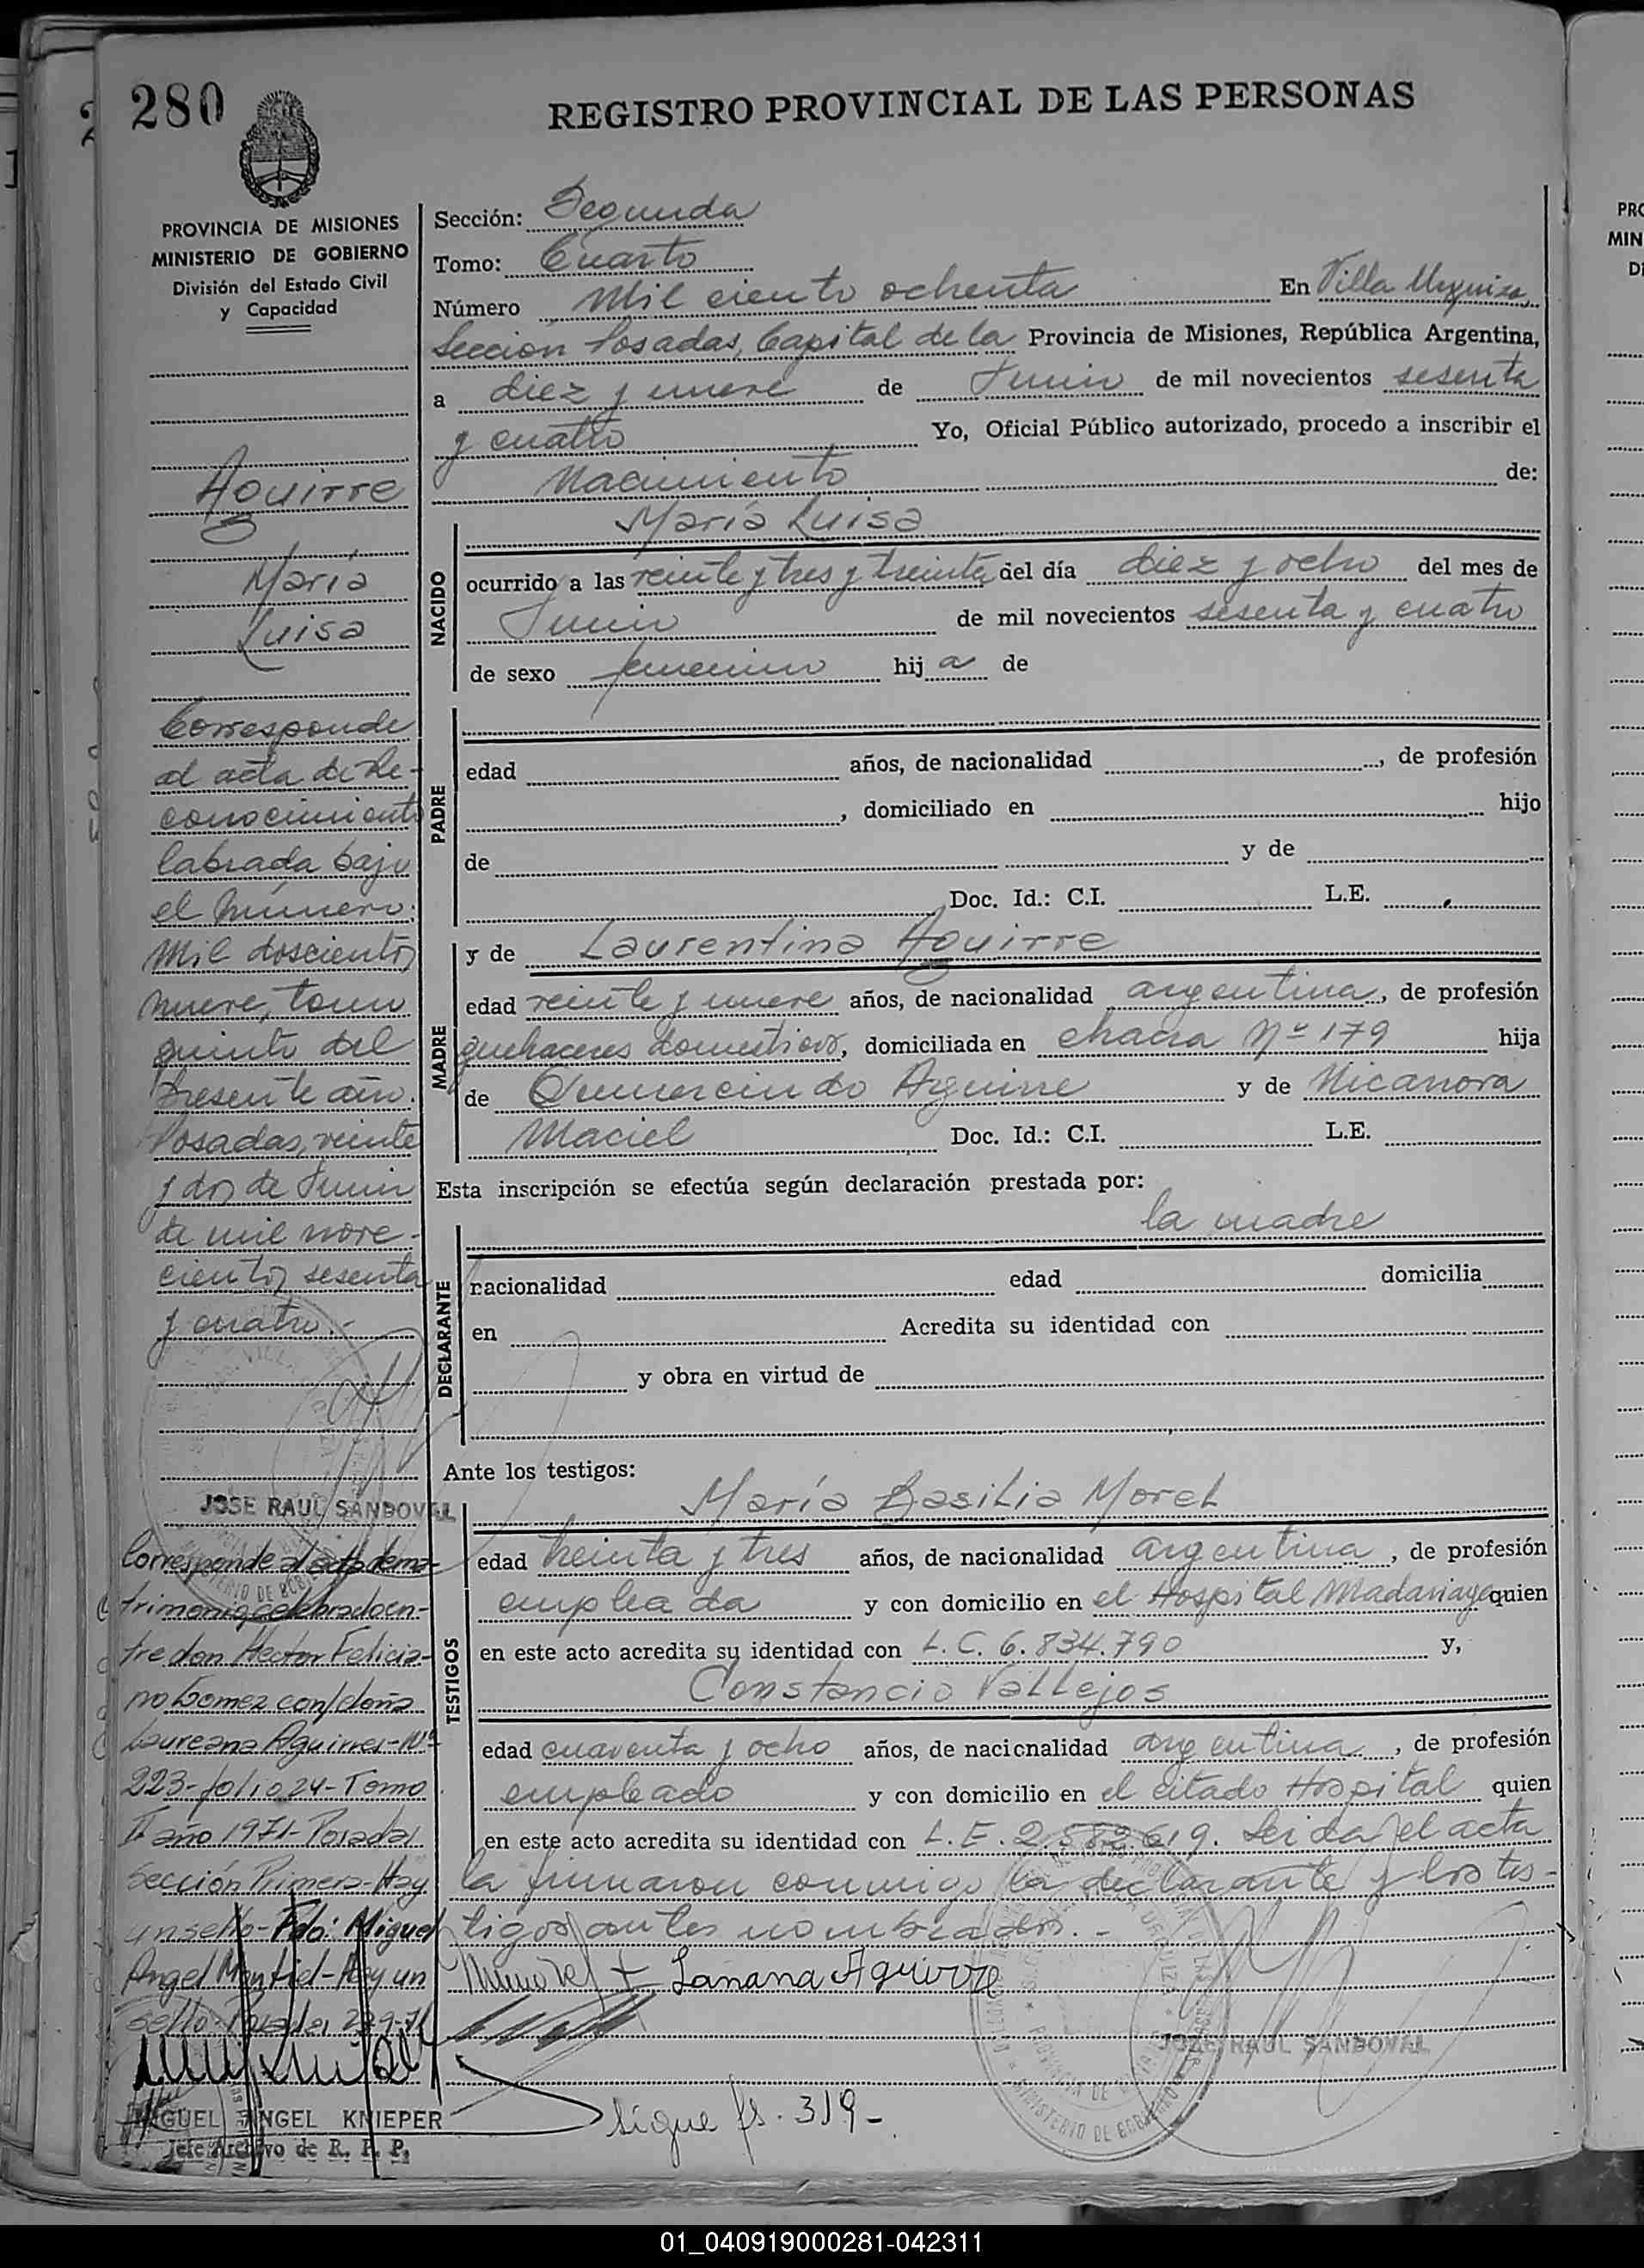 280
REGISTRO PROVINCIAL DE LAS PERSONAS
PROVINCIA DE MISIONES
MINISTERIO DE GOBIERNO
División del Estado Civil
y Capacidad
Aguirre
María
Luisa
Corresponde
al acta de Re-
conocimiento
labrada bajo
el número:
mil doscientos
nueve, tomo
quinto del
presente año.
Posadas, veinte
y dos de Junio
de mil nove-
cientos sesenta
y cuatro.-
JOSE RAUL SANDOVAL
Corresponde al acta de ma-
trimonio celebrado en-
tre don Hector Felicia-
no Gomez con doña
Laureana Aguirres-Nº
223-folio 24-Tomo
II año 1971-Posadas
Sección Primera-Hay
un sello-Fdo: Miguel
Angel Montiel-Hay un
sello-Posadas
MIGUEL ANGEL KNIEPER
Jefe Archivo de R. P. P.
Sección: Segunda
Tomo: Cuarto
Número Mil ciento ochenta En Villa Urquiza,
Sección Posadas, Capital de la Provincia de Misiones, República Argentina,
a diez y nueve de Junio de mil novecientos sesenta
y cuatro Yo, Oficial Público autorizado, procedo a inscribir el
Nacimiento de:
NACIDO
María Luisa
ocurrido a las veinte y tres y treinta del día diez y ocho del mes de
Junio de mil novecientos sesenta y cuatro
de sexo femenino hij a de
PADRE
edad años, de nacionalidad , de profesión
, domiciliado en hijo
de y de
Doc. Id.: C.I. L.E.
MADRE
y de Laurentina Aguirre
edad veinte y nueve años, de nacionalidad argentina, de profesión
quehaceres domesticos, domiciliada en chacra Nº 179 hija
de Gumercindo Aguirre y de Nicanora
Maciel Doc. Id.: C.I. L.E.
Esta inscripción se efectúa según declaración prestada por:
DECLARANTE
la madre
nacionalidad edad domicilia
en Acredita su identidad con
y obra en virtud de
Ante los testigos:
TESTIGOS
María Basilia Morel
edad treinta y tres años, de nacionalidad argentina, de profesión
empleada y con domicilio en el Hospital Madariaga quien
en este acto acredita su identidad con L.C. 6.834.790 y,
Constancio Vallejos
edad cuarenta y ocho años, de nacionalidad argentina, de profesión
empleado y con domicilio en el citado Hospital quien
en este acto acredita su identidad con L.E. 2.582619. Leida el acta
la firmaron conmigo la declarante y los tes-
tigos antes nombrados.-
Lanana Aguirre
JOSE RAUL SANDOVAL
Sigue fs. 319-
01_040919000281-042311